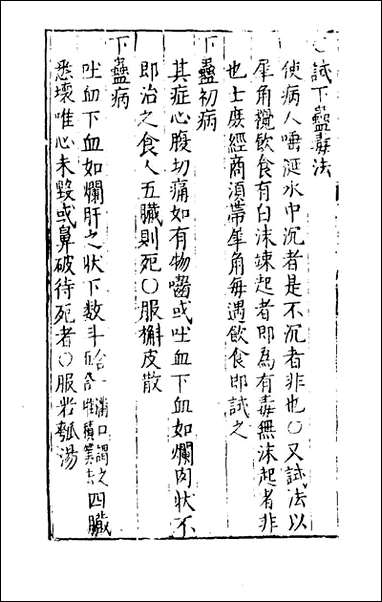 試下蠱毒法
使病人唾涎水中沉者是不沉者非也〇又試法以
犀角攪飲食有白沫竦起者即為有毒無沫起者非
也士庶經商須帶犀角每遇飲食即試之
下蠱初病
其症心腹切痛如有物嚙或吐血下血如爛肉状不
即治之食人五臟則死〇服槲皮散
下蠱病
吐血下血如爛肝之状下数斗合一滿口謂之四臟
悉壞唯心未毀或鼻破待死者〇服瓢湯